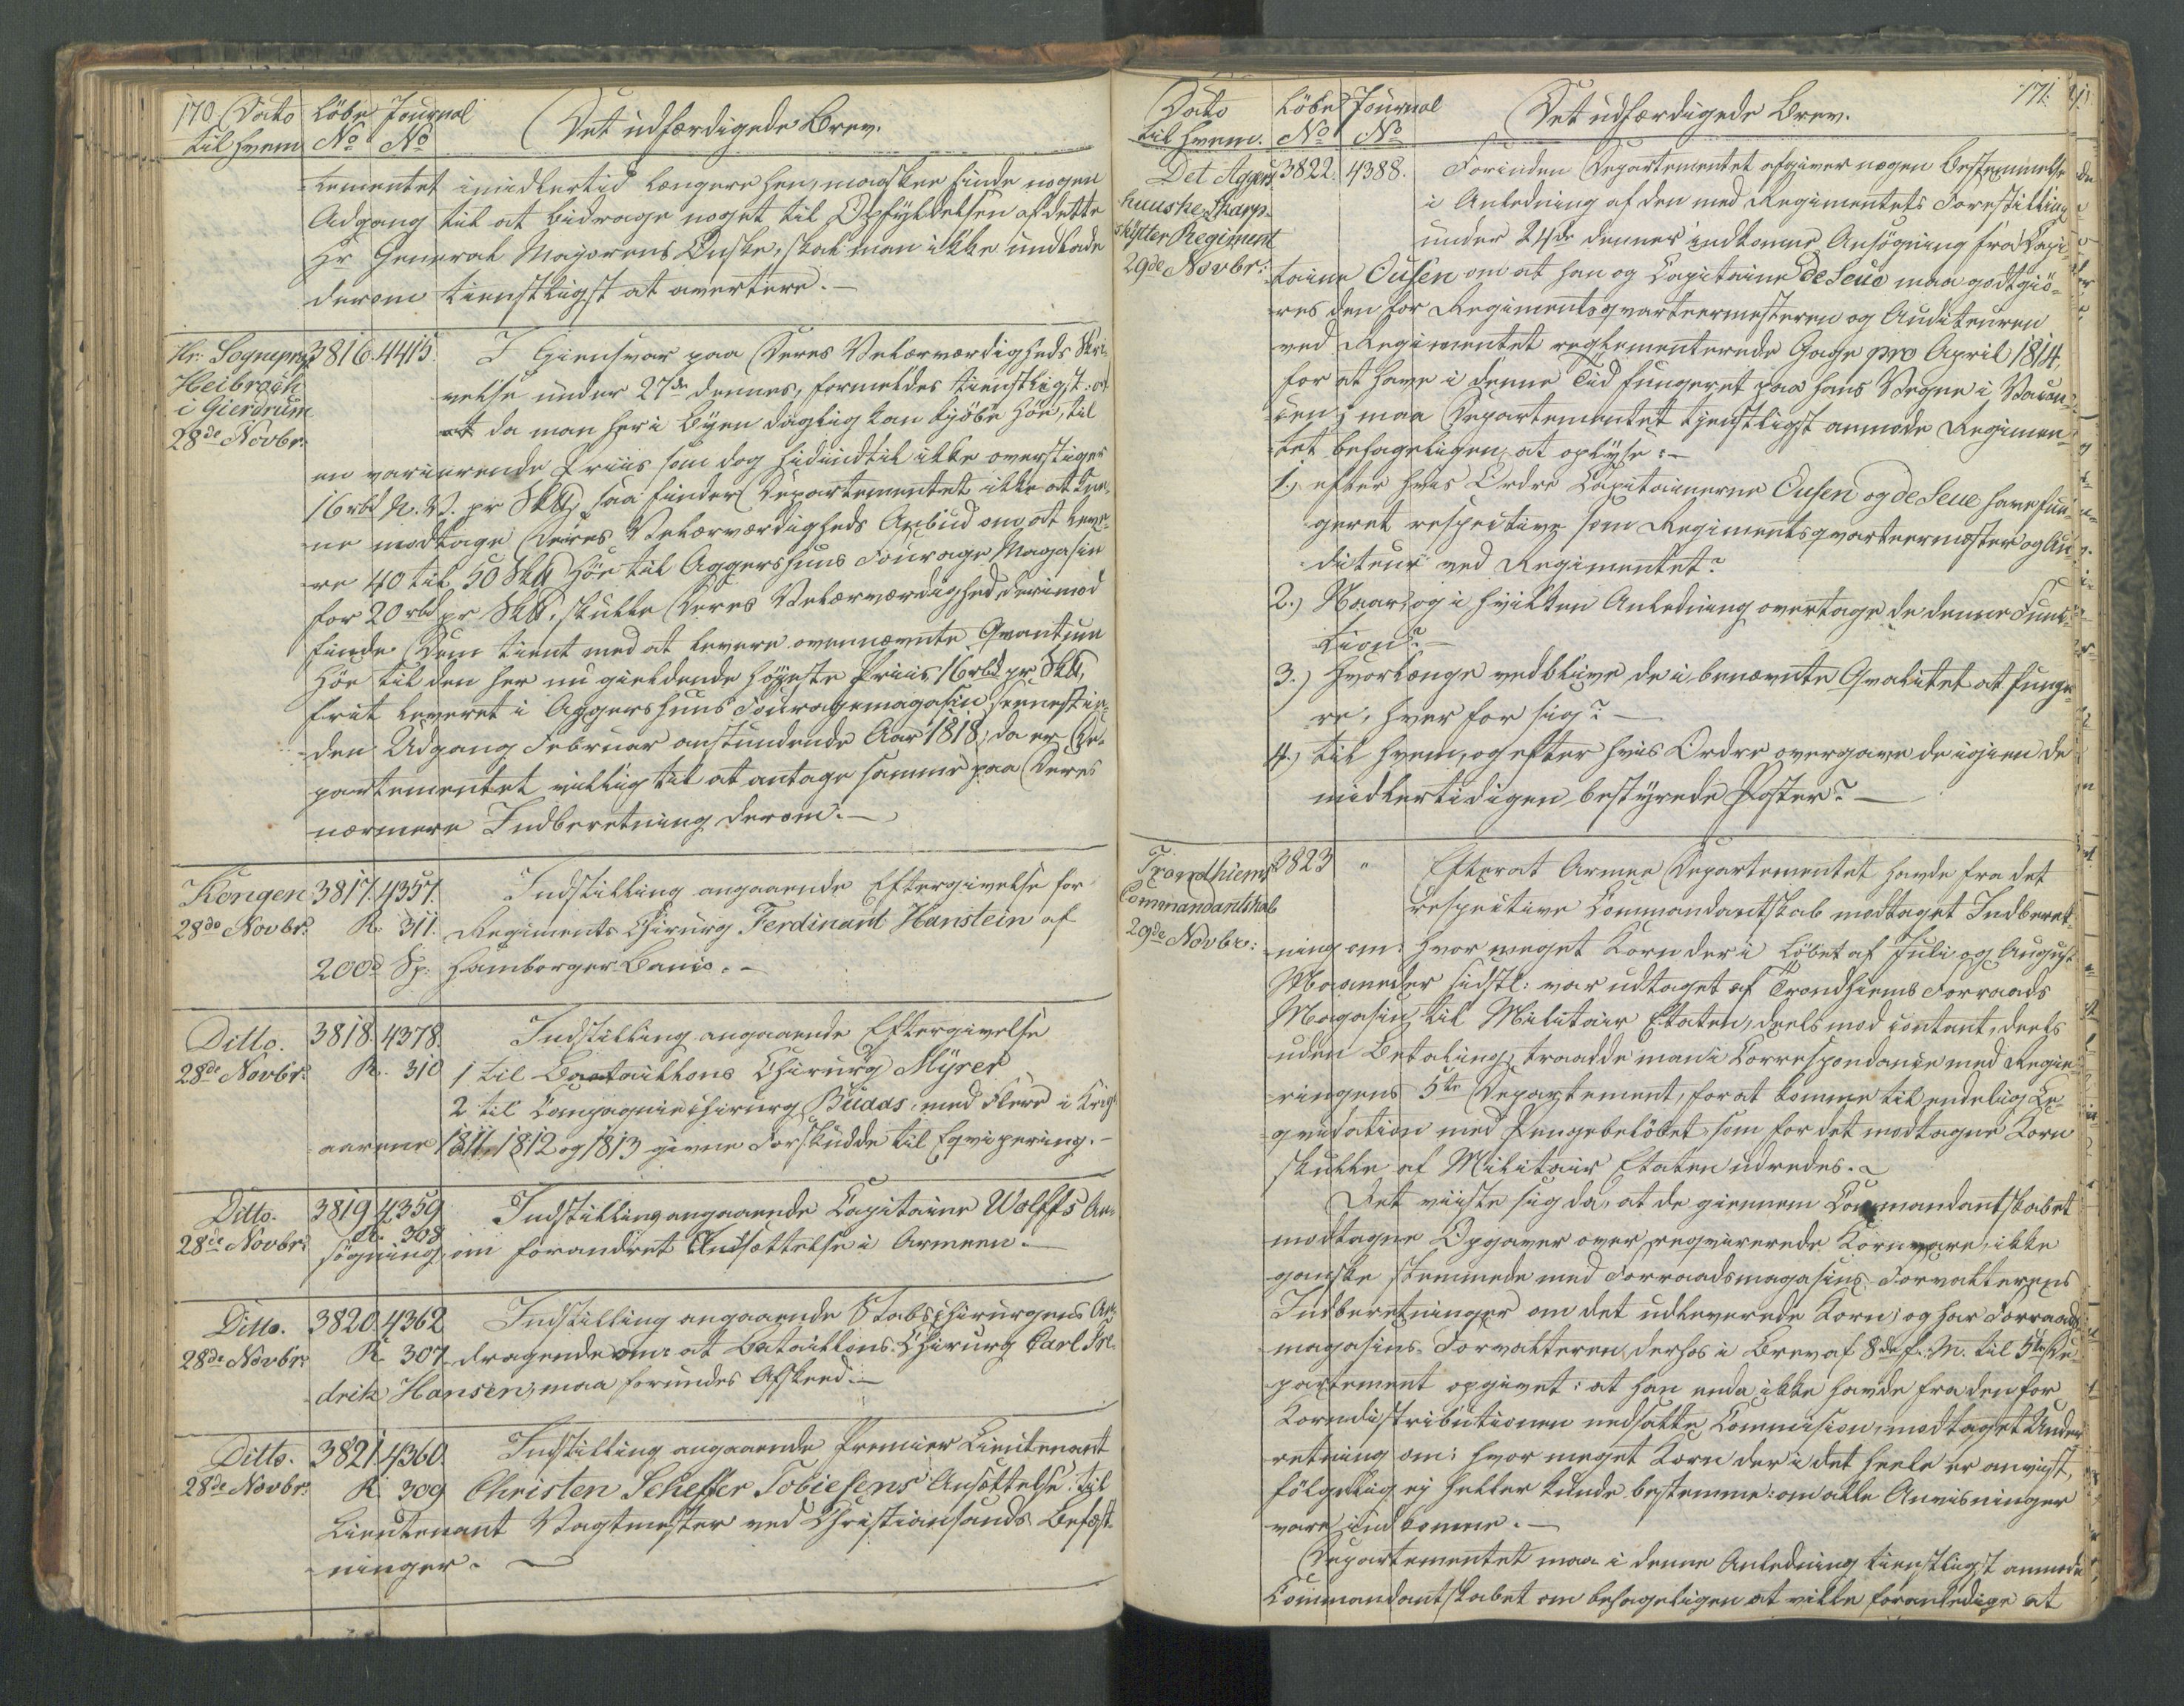 170. Dato Löbe Journal Det udfærdigede Brev.
til hvem No No
tementet imidlertid længere hen, maaskee finde nogen
Adgang til at bidrage noget til Opfyldelsen af dette
Hr General Majorens Önske, skal man ikke undlade
derom tienstligst at avertere. —
Hr: Sognepræst 3816. 4415. I Giensvar paa Deres Velærværdigheds Skri-
Heibragh velse under 27de dennes, formeldes tienstligst: at
i Gierdrum at da man her i Byen daglig kan kjöbe Höe, til
28de Novbr: en varierende Priis som dog hidindtil ikke overstiger
16 rbd N. V. pr Sk℔, saa finder Departementet ikke at kun-
ne modtage Deres Velærværdigheds Anbud om at leve-
re 40 til 50 Sk℔ Höe til Aggershuus Fourage Magasin
for 20 rbd pr Sk℔. skulle Deres Velærværdighed derimod
finde Dem tient med at levere ovennævnte Qvantum
Höe til den her nu gieldende höyeste Priis 16 rbd pr Sk℔,
frit leveret i Aggershuus Fouragemagasin seenest in-
den Udgang Februar anstundende Aar 1818, da er De-
partementet villig til at antage samme paa Deres
nærmere Indberetning derom. —
Kongen 3817. 4357. Indstilling angaaende Eftergivelse for
28de Novbr: R. 311. Regiments Chirurg Ferdinant Hanstein af
200d Sp: Hamborger Banco. —
Ditto. 3818. 4378. Indstilling angaaende Eftergivelse
28de Novbr: R. 310 1 til Bataillons Chirurg Myrer
2 til Compagniechirurg Budds, med Flere i Krigs
aarene 1811, 1812 og 1813 givne Forskudde til Eqvipering. —
Ditto. 3819 4359 Indstilling angaaende Capitaine Wolffs An-
28de Novbr: R. 308
søgning om forandret Ansættelse i Armeen. —
Ditto. 3820 4362 Indstilling angaaende Stabschirurgens An-
28de Novbr: R. 307 dragende om at Bataillons Chirurg Carl Fre-
drik Hansen, maa forundes Afskeed. —
Ditto. 3821 4360. Indstilling angaaende Premier Lieutenant
28de Novbr: R. 309 Christen Scheffer Tobiesens Ansættelse til
Lieutenant Vagtmester ved Christiansands Befæst-
ninger. —
Dato Löbe Journal Det udfærdigede Brev. 171.
til hvem. No No
Det Aggers- 3822. 4388. Forinden Departementet afgiver nogen Bestemmelse
huuske Skarp- i Anledning af den med Regimentets Forestilling
skytter Regiment under 24de dennes indkomne Ansögning fra Capi-
29de Novbr: taine Ousen om at han og Capitaine de Seue maa godtgiö-
res den for Regimentsqvarteermesteren og Auditeuren
ved Regimentet reglementerede Gage pro April 1814,
for at have i denne Tid fungeret paa hans Vegne i Vacan-
cen; maa Departementet tjenstligst anmode Regimen-
tet behageligen at oplyse: —
1.) efter hvis Ordre Capitainerne Ousen og de Seue have fun-
geret respective som Regimentsqvarteermester og Au-
diteur ved Regimentet?
2.) Naar, og i hvilken Anledning overtage de denne Func-
tion? —
3.) Hvorlænge vedblive de i benævnte Qvalitet at funge-
re, hver for sig? —
4.) til hvem, og efter hvis Ordre overgave de igien de
midlertidigen bestyrede Poster? —
Trondhiems 3823 " Efterat Armee Departementet havde fra det
Commandantskab respective Commandantskab modtaget Indberet-
29de Novbr: ning om: hvor meget Korn der i Löbet af Juli og August
Maaneder sidstl: var udtaget af Trondhiems Forraads
Magasin til Militair Etaten, deels mod contant, deels
uden Betaling, traadde man i Correspondance med Regie-
ringens 5te Departement, for at komme til endelig Li-
qvidation med Pengebelöbet, som for det modtagne Korn
skulle af Militair Etaten udredes. —
Det viiste sig da, at de giennem Commandantskabet
modtagne Opgaver over reqvirerede Kornvare, ikke
ganske stemmede med Forraadsmagasins Forvalterens
Indberetninger om det udleverede Korn; og har Forraads-
magasins-Forvalteren derhos i Brev af 8de f. M. til 5te De-
partement opgivet: at han enda ikke havde fra den for
Korndistributionen nedsatte Commision, modtaget Under-
retning om: hvor meget Korn der i det heele er anviist,
fölgelig ej heller kunde bestemme: om alle Anvisninger
vare indkomne. —
Departementet maa i denne Anledning tienstligst anmode
Commandantskabet om behageligen at ville foranledige at